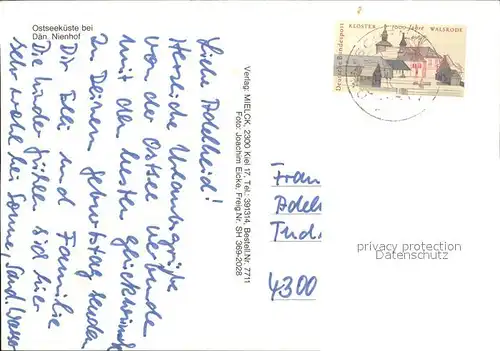 Ostseeküste bei
Dän. Nienhof
Liebe Adelheid!
Herzliche Urlaubsgrüße
von der Ostsee verbunden
mit den besten Glückwünschen
zu Deinem Geburtstag senden
Dir und Familie
Die Kinder fühlen sich hier
sehr wohl bei Sonne, Sand, Wasser
Verlag: MIELCK, 2300 Kiel 17, Tel.: 391314, Bestell.Nr. 7711
Foto: Joachim Eicke, Freig.Nr. SH 389-2028
Deutsche Bundespost
KLOSTER 1000 Jahre WALSRODE
Frau
Adel
4300
privacy protection
Datenschutz